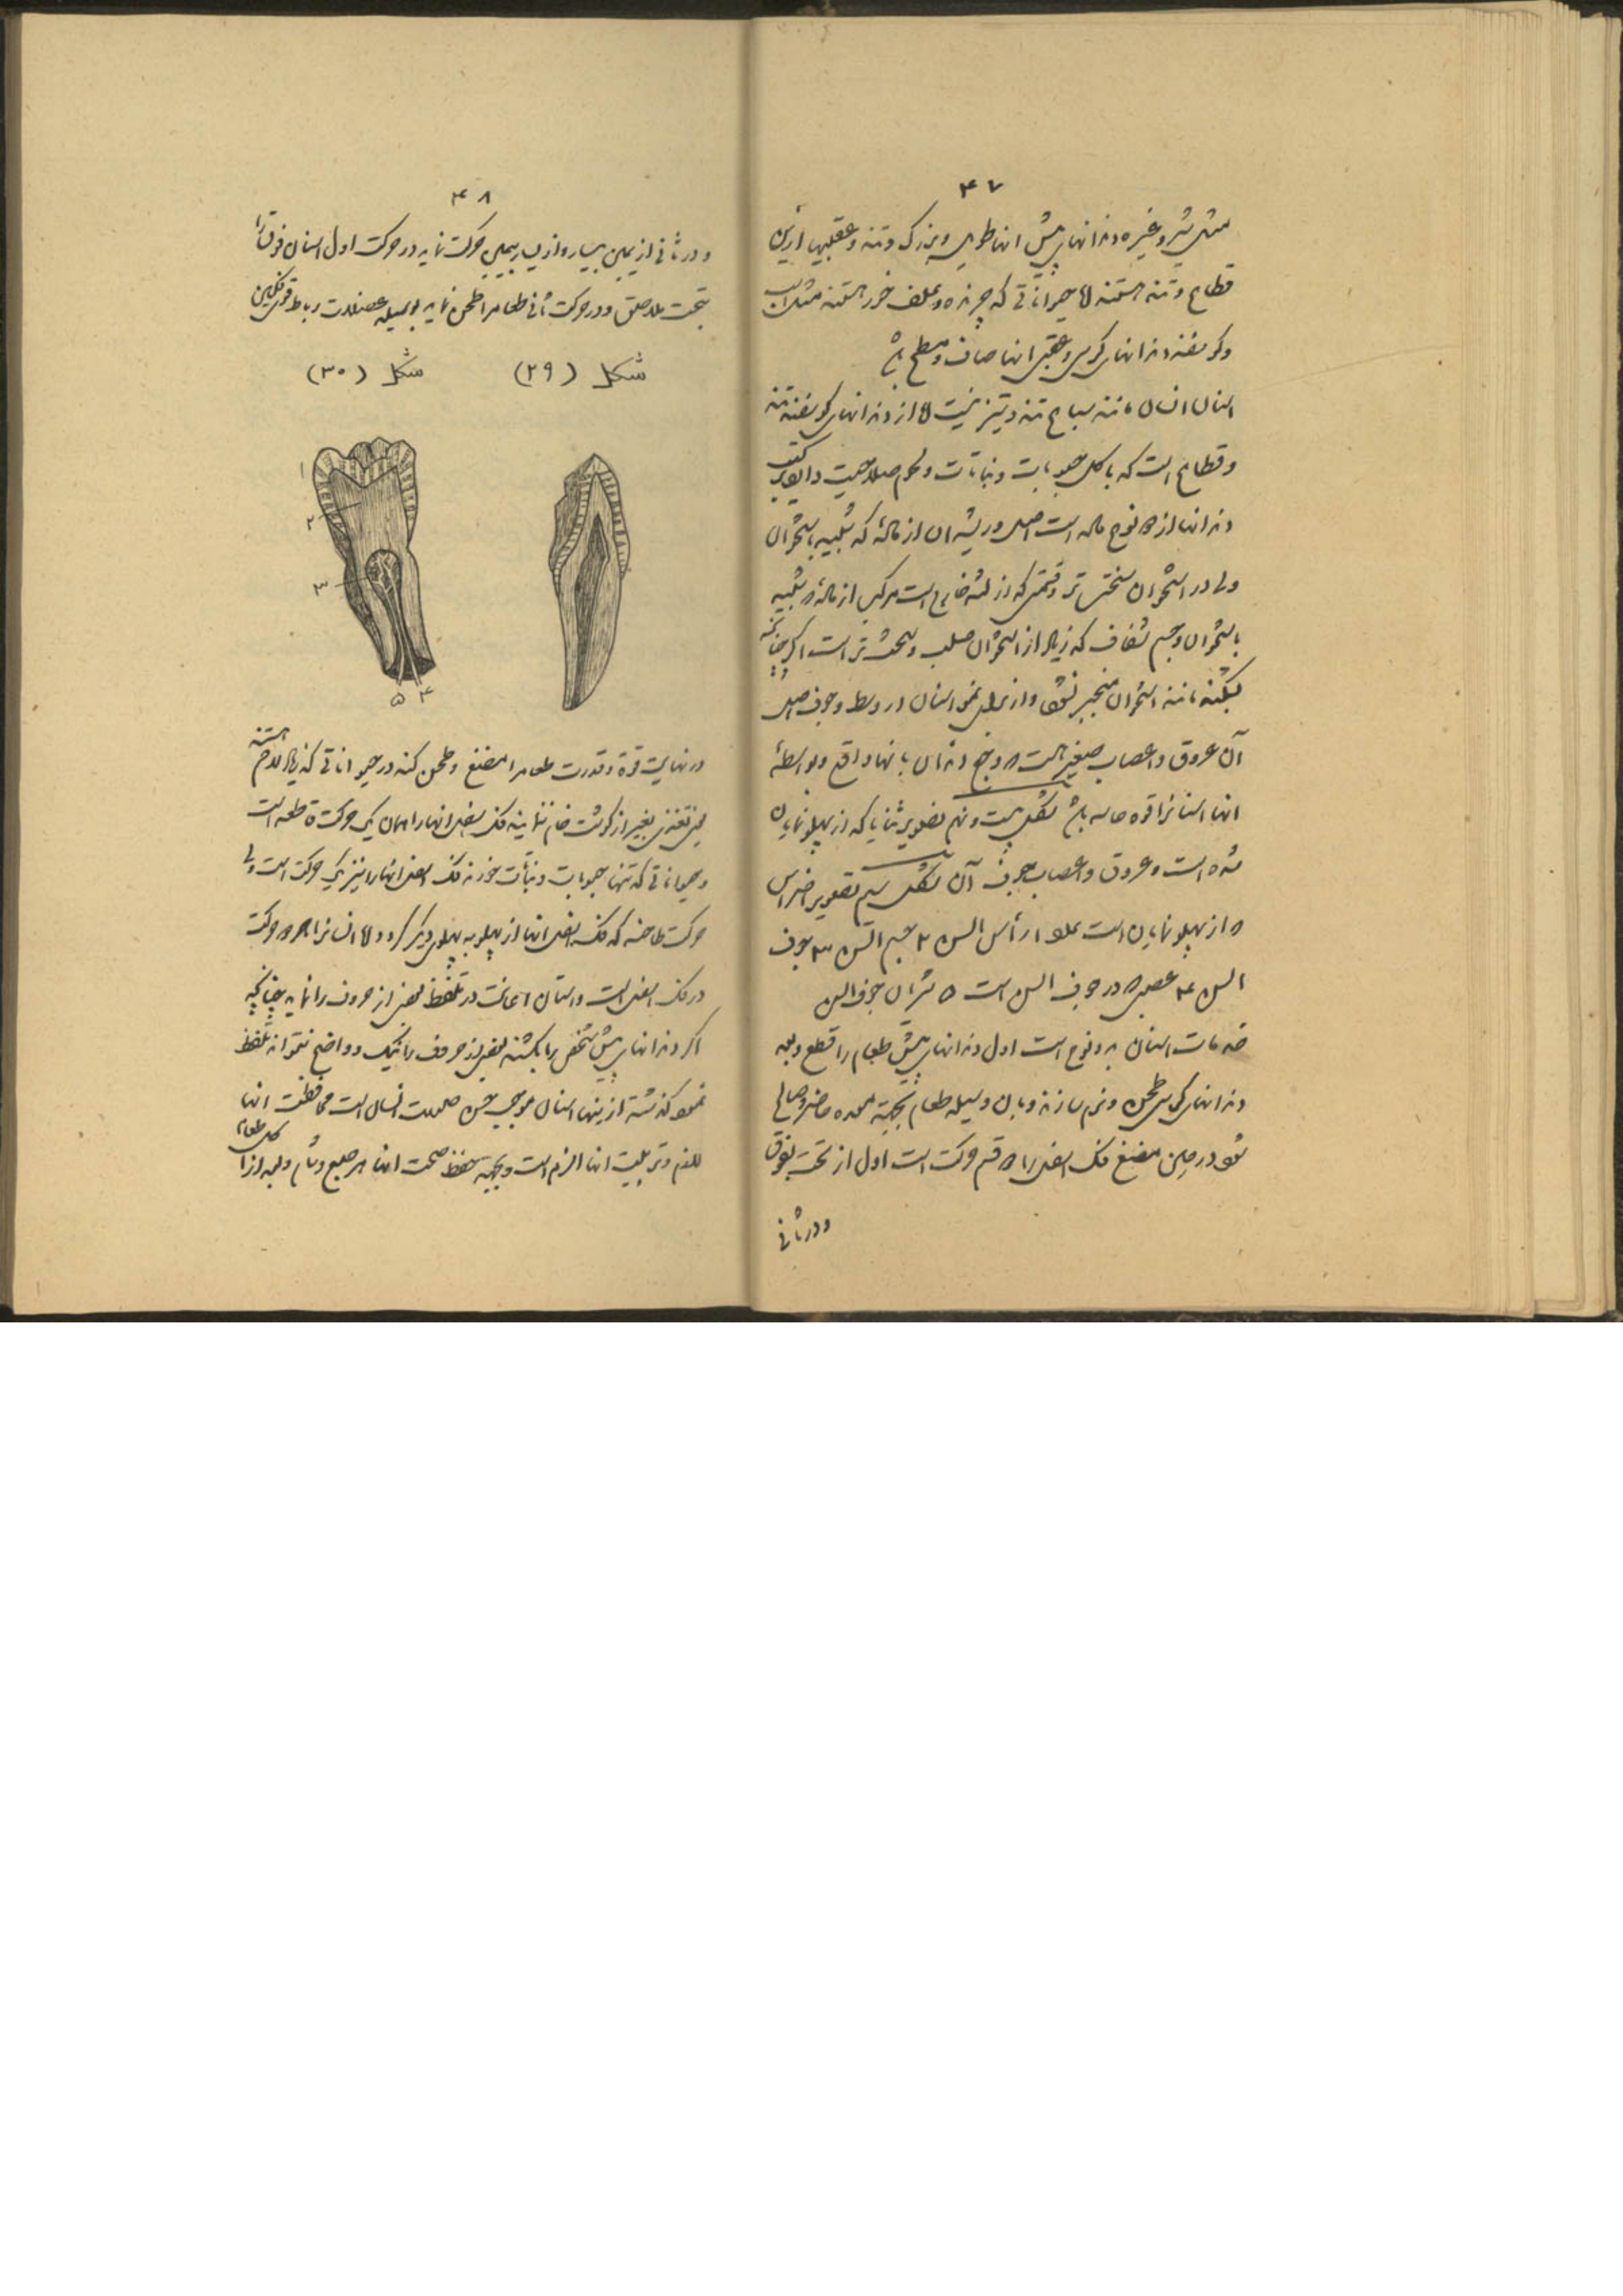 ۴۷
مثل شیر و غیره دندانهای پیش انها طویل و بزرک و تند و عقبیها
قطاع و تند هستند اما حیواناتی که چرنده و علف خور هستند مثل اسب
و کوسفند دندانهای کرسی و عقبی انها صاف و مسطح باشد
اسنان انسان مانند سباع تند و تیز نیست اما از دندانهای کوسفند تند
و قطاع است که باکل حبوبات و نباتات و لحوم صلاحیت دارد ترکیب
دندانها از دو نوع ماده است اصل و ریشهٔ ان از مادهٔ که شبیه باستخوان
ولی از استخوان سختتر و قسمتی که از لثه خارج است مرکب از مادهٔ شبیه
باستخوان و جسم شفاف که زیاد از استخوان صلب و سختتر است اکر چنانچه
بشکند مانند استخوان منجبر نشود و از برای نمو اسنان در وسط و جوف اصل
آن عروق و اعصاب صغیر است و وجع دندان بانها واقع و بواسطهٔ
انها اسنانرا قوه حاسه باشد شکل بیست و نهم تصویر ثنایا که از پهلو نمایان
شده است و عروق و اعصاب جوف آن شکل سیم تصویر اضراس
از پهلو نمایان است علو ۱ رأس السن ۲ جسم السن ۳ جوف
السن ۴ عصبی در جوف السن است ۵ شریان جوف السن
خدمات اسنان بدو نوع است اول دندانهای پیش طعام را قطع و بعد
دندانهای کرسی طحن و نرم سازند و بان وسیله طعام بجهة معده حاضر و صالح
شود در حین مضغ فک اسفل را دو قسم حرکت است اول از تحت بفوق
و در ثانی
۴۸
و در ثانی از یمین بیسار و از یسار بیمین حرکت نماید در حرکت اول اسنان فوق را
بتحت ملاصق و در حرکت ثانی طعام را طحن نماید بوسیله عضلات و رباط قوی فکین
شکل (۲۹) شکل (۳۰)
۱
۲
۳
۵ ۴
در نهایت قوة و قدرت طعام را مضغ و طحن کند در حیواناتی که هستند
یعنی تغذی بغیر از کوشت خام ننمایند فک اسفل انها را همان یک حرکت قاطعه است
و حیواناتی که تنها حبوبات و نباتات خورند فک اسفل انها را نیز یک حرکت است ولی
حرکت طاحنه که فک اسفل انها از پهلو به پهلوی دیکر کردد اما انسانرا هر دو حرکت
در فک اسفل است و اسنان اعانت در تلفظ بعضی از حروف را نماید چنانچه
اکر دندانهای پیش شخص را بکشند بعضی از حروف را نیک و واضح نتواند تلفظ
نمود کذشته از اینها اسنان موجب حسن صورت انسان است محافظت انها
لازم و تربیت انها الزم است و بجهة حفظ صحت انها هر صبح و شام و بعد از اکل طعام